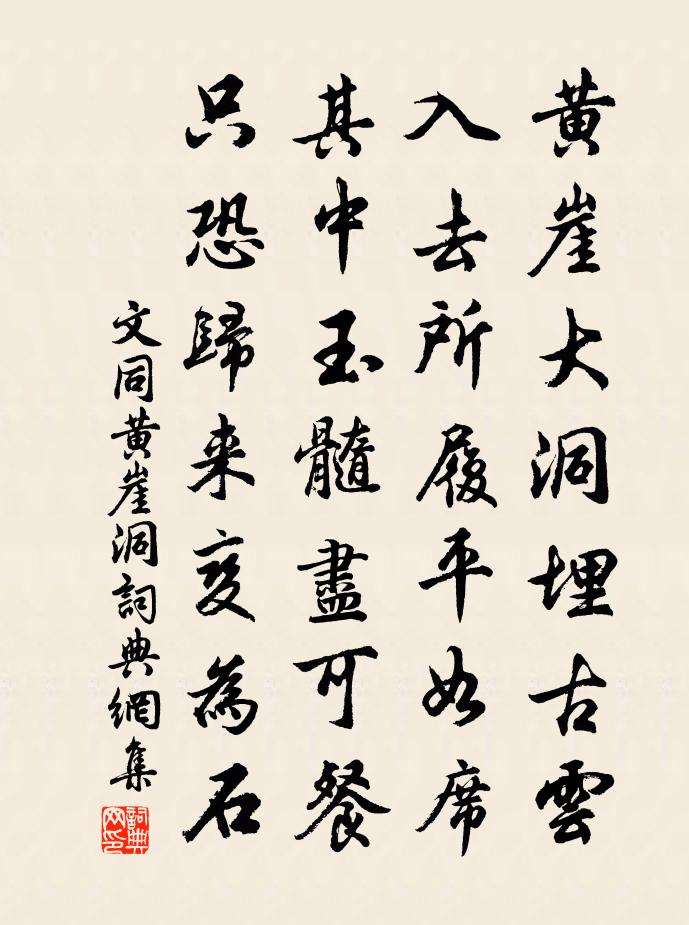 黄崖大洞埋古雲
入去所履平如席
其中玉髓盡可餐
只恐歸来变為石
文同黄崖洞詞典網集
詞典網印